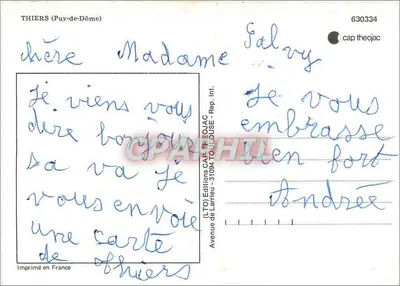 THIERS (Puy-de-Dôme)
630334
cap theojac
chère Madame Salvy
Je viens vous
dire bonjour
sa va Je
vous envoie
une carte
de thiers
Je vous
embrasse
bien fort
Andrée
(LTO) Editions CAP-THEOJAC
Avenue de Larrieu - 31094 TOULOUSE - Rep. int.
CPARAMA
Imprimé en France